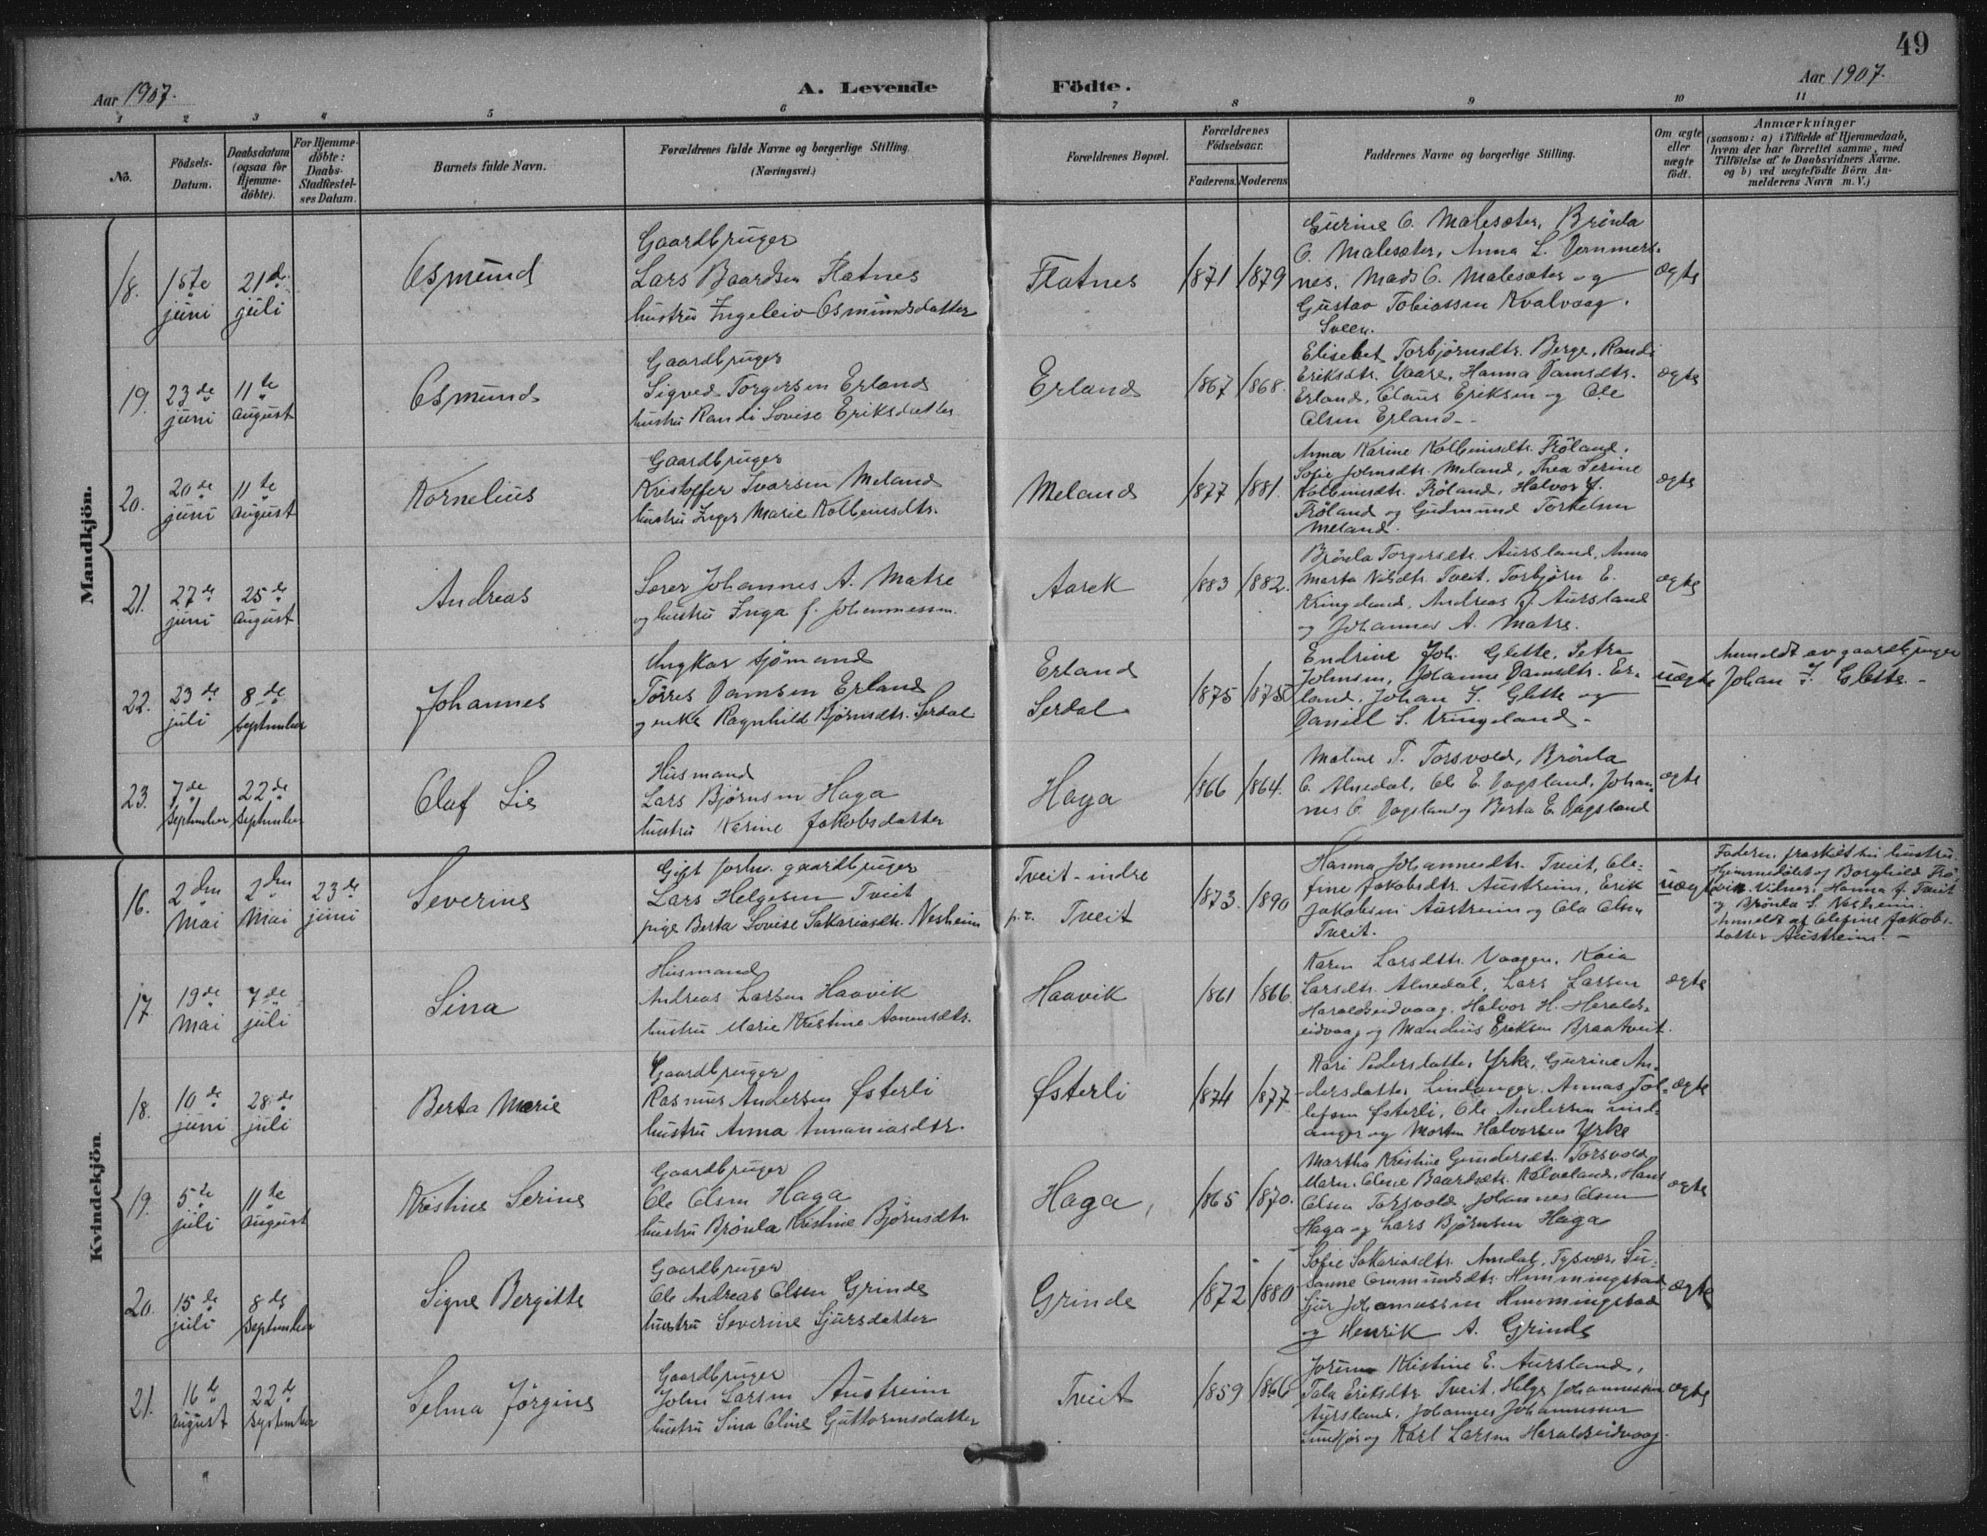 49
Aar 1907.
A. Levende Födte.
Aar 1907.
1 2 3 4 5 6 7 8 9 10 11
No.
Födsels-Datum.
Daabsdatum (ogsaa for Hjemme-döbte).
For Hjemme-döbte: Daabs-Stadfæstel-ses Datum.
Barnets fulde Navn.
Forældrenes fulde Navne og borgerlige Stilling.
(Næringsvei.)
Forældrenes Bopæl.
Forældrenes Födselsaar.
Faderens. Moderens
Faddernes Navne og borgerlige Stilling.
Om ægte eller uægte födt.
Anmærkninger
(saasom: a) i Tilfælde af Hjemmedaab,
hvem der har forrettet samme, med
Tilföielse af to Daabsvidners Navne.
og b) ved uægtefödte Börn An-
melderens Navn m. V.)
Mandkjön.
18. 15te juni 21de juli
Osmund
Gaardbruger
Lars Baardsen Flatnes
hustru Ingeleiv Osmundsdatter
Flatnes
1871 1879
Gurine O. Malesæter, Brønla
O. Malesæter, Anna L.
nes, Mads O. Malesæter og
Gustav Tobiassen Kvalvaag.
Sveen.
ægte
19. 23de juni 11te august
Osmund
Gaardbruger
Sigved Torgersen Erland
hustru Randi Lovise Eriksdatter
Erland
1867 1868.
Elisebet Torbjørnsdtr. Berge, Randi
Eriksdtr. Vaare, Hanna Damsdtr.
Erland, Claus Eriksen og Ole
Olsen Erland.
ægte
20. 20de juni 11te august
Kornelius
Gaardbruger
Kristoffer Ivarsen Meland
hustru Inger Marie Kolbeinsdtr.
Meland
1877 1881.
Anna Karine Kolbeinsdtr. Frøland,
Sofie Johnsdtr. Meland, Thea Serine
Kolbeinsdtr. Frøland, Halvor J.
Frøland og Gudmund Torkelsen
Meland.
ægte
21. 27de juni 25de august
Andreas
Lærer Johannes A. Matre
og hustru Inga f. Johannessen.
Aarek
1883 1882.
Brønla Torgersdtr. Aursland, Anna
Marta Nilsdtr. Tveit, Torbjørn E.
Kringeland, Andreas J. Aursland
og Johannes A. Matre.
ægte
22. 23de juli 8de september
Johannes
Ungkar sjømand
Tørres Damsen Erland
og enke Ragnhild Bjørnsdtr. Serdal
Erland
Serdal
1875 1875
Endrine Joh. Glette, Petra
Johnsen, Johanne Damsdtr. Er-
land, Johan J. Glette og
Daniel S. Kringeland.
uægte
Anmeldt av gaardbruger
Johan J. Glette.
23. 7de september 22de september
Olaf Lie
Husmand
Lars Bjørnsen Haga
hustru Karine Jakobsdatter
Haga
1866 1864.
Maline T. Torsvold, Brønla
O. Alnedal, Ole E. Vagsland, Johan-
nes O. Vagsland og Berta E. Vagsland
ægte
Kvindekjön.
16. 2den Mai 2den Mai 23de juni
Severine
Gift forhv. gaardbruger
Lars Helgesen Tveit
pige Berta Lovise Sakariasdtr. Nesheim
Tveit-indre
p.t. Tveit
1873. 1890
Hanna Johannesdtr. Tveit, Ole-
fine Jakobsdtr. Austreim, Erik
Jakobsen Austreim og Ola Olsen
Tveit.
uægte
Faderen fraskilt sin hustru.
Hjemmedøbt af Borghild
Vidner: Hanna J. Tveit
og Brønla S. Nesheim.
Anmeldt af Olefine Jakobs-
datter Austreim.
17. 19de Mai 7de juli
Sina
Husmand
Andreas Larsen Haavik
hustru Marie Kristine Aanensdtr.
Haavik
1861 1866.
Karen Larsdtr. Vaagen, Kaia
Larsdtr. Alnedal, Lars Larsen
Haraldseidvaag, Halvor H. Haralds-
eidvaag og Mandius Eriksen Braatveit.
ægte
18. 10de juni 28de juli
Berta Marie
Gaardbruger
Rasmus Andersen Østerli
hustru Anna Ananiasdtr.
Østerli
1874 1877
Kari Pedersdatter Yrke, Gurine An-
dersdatter Lindanger, Annas Tol-
lefsen Østerli, Ole Andersen Lind-
anger og Morten Halvorsen Yrke
ægte
19. 5te juli 11te august
Kristine Serine
Gaardbruger
Ole Olsen Haga
hustru Brønla Kristine Bjørnsdtr.
Haga,
1865 1870.
Martha Kristine Gundersdtr. Torsvold,
Maren Oline Baardsdtr. Kalveland, Hans
Olsen Torsvold, Johannes Olsen
Haga og Lars Bjørnsen Haga
ægte
20. 15de juli 8de september
Signe Bergitte
Gaardbruger
Ole Andreas Olsen Grinde
hustru Severine Sjursdatter
Grinde
1872 1880
Sofie Sakariasdtr. Amdal, Tysvær, Su-
sanne Ommundsdtr. Hemmingstad
Sjur Johannessen Hemmingstad
og Henrik A. Grinde
ægte
21. 16de august 22de september
Selma Jörgine
Gaardbruger
John Larsen Austreim
hustru Sina Oline Guttormsdatter
Tveit
1859 1866
Jorunn Kristine E. Aursland,
Tala Eriksdtr. Tveit, Helge Johannessen
Aursland, Johannes Johannessen
Sundfør og Karl Larsen Haraldseidvaag.
ægte